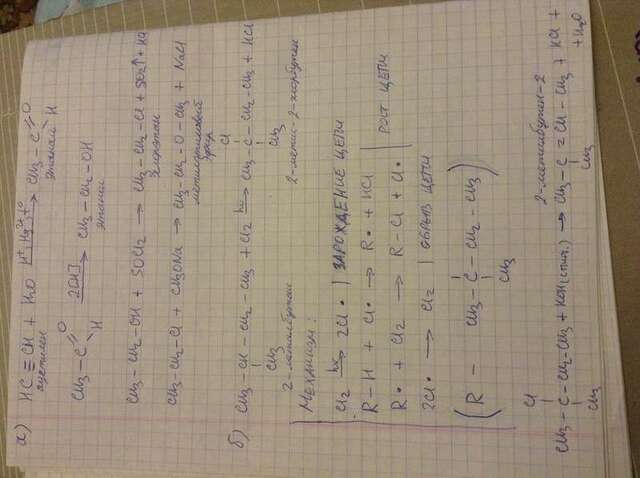 а) HC≡CH + H2O H+, Hg2+, t° → CH3–C=O
H
ацетилен этаналь
CH3–C=O 2[H] → CH3–CH2–OH
H
этанол
CH3–CH2–OH + SOCl2 → CH3–CH2–Cl + SO2↑ + HCl
хлорэтан
CH3–CH2–Cl + CH3ONa → CH3–CH2–O–CH3 + NaCl
метилэтиловый
эфир
Cl
б) CH3–CH–CH2–CH3 + Cl2 hν → CH3–C–CH2–CH3 + HCl
CH3 CH3
2-метилбутан 2-метил-2-хлорбутан
Механизм:
Cl2 hν → 2Cl• | ЗАРОЖДЕНИЕ ЦЕПИ
R–H + Cl• → R• + HCl
R• + Cl2 → R–Cl + Cl• | РОСТ ЦЕПИ
2Cl• → Cl2 | ОБРЫВ ЦЕПИ
(R – CH3–C–CH2–CH3)
CH3
Cl 2-метилбутен-2
CH3–C–CH2–CH3 + KOH (спирт.) → CH3–C=CH–CH3 + KCl +
CH3 CH3 + H2O